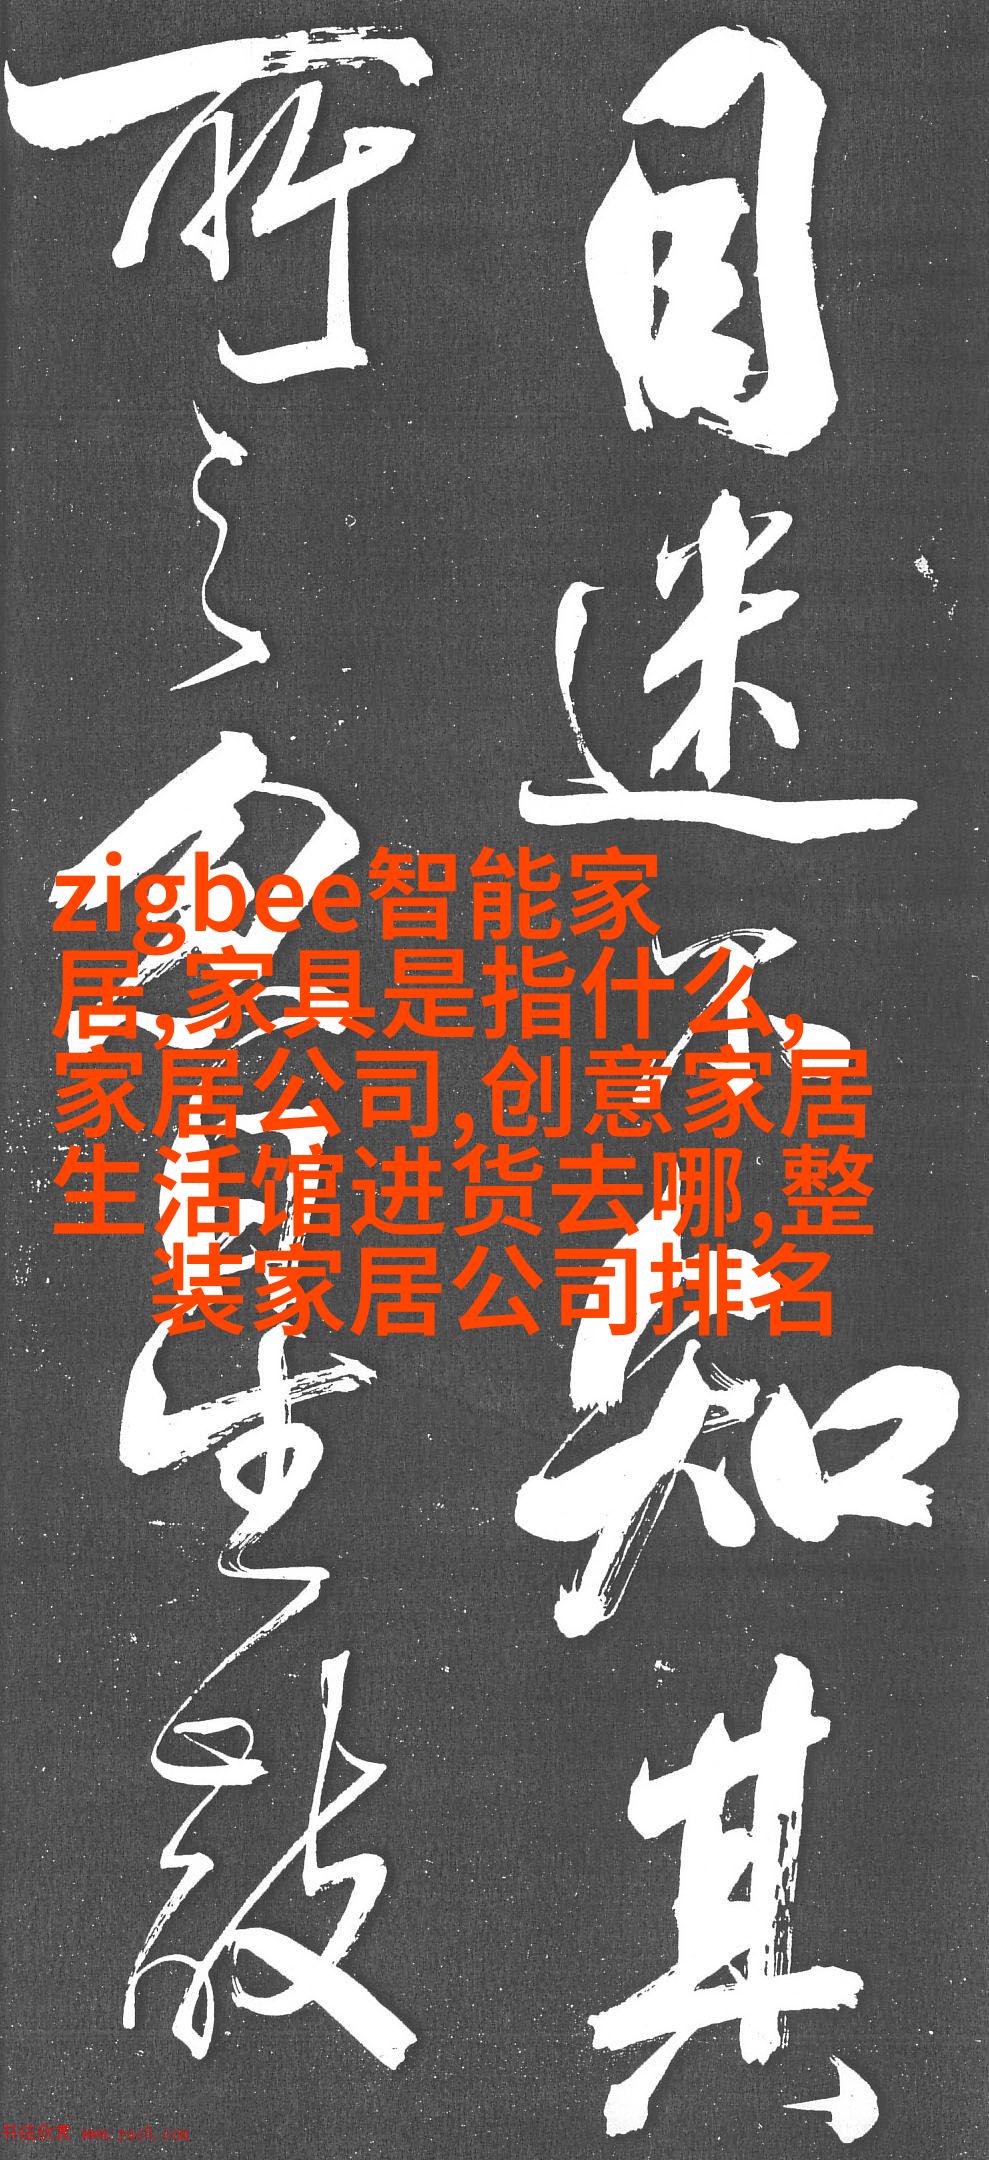 目迷不知其
所之忽自生敲
zigbee智能家
居,家具是指什么,
家居公司,创意家居
生活馆进货去哪,整
装家居公司排名
书法欣赏 www.yac8.com